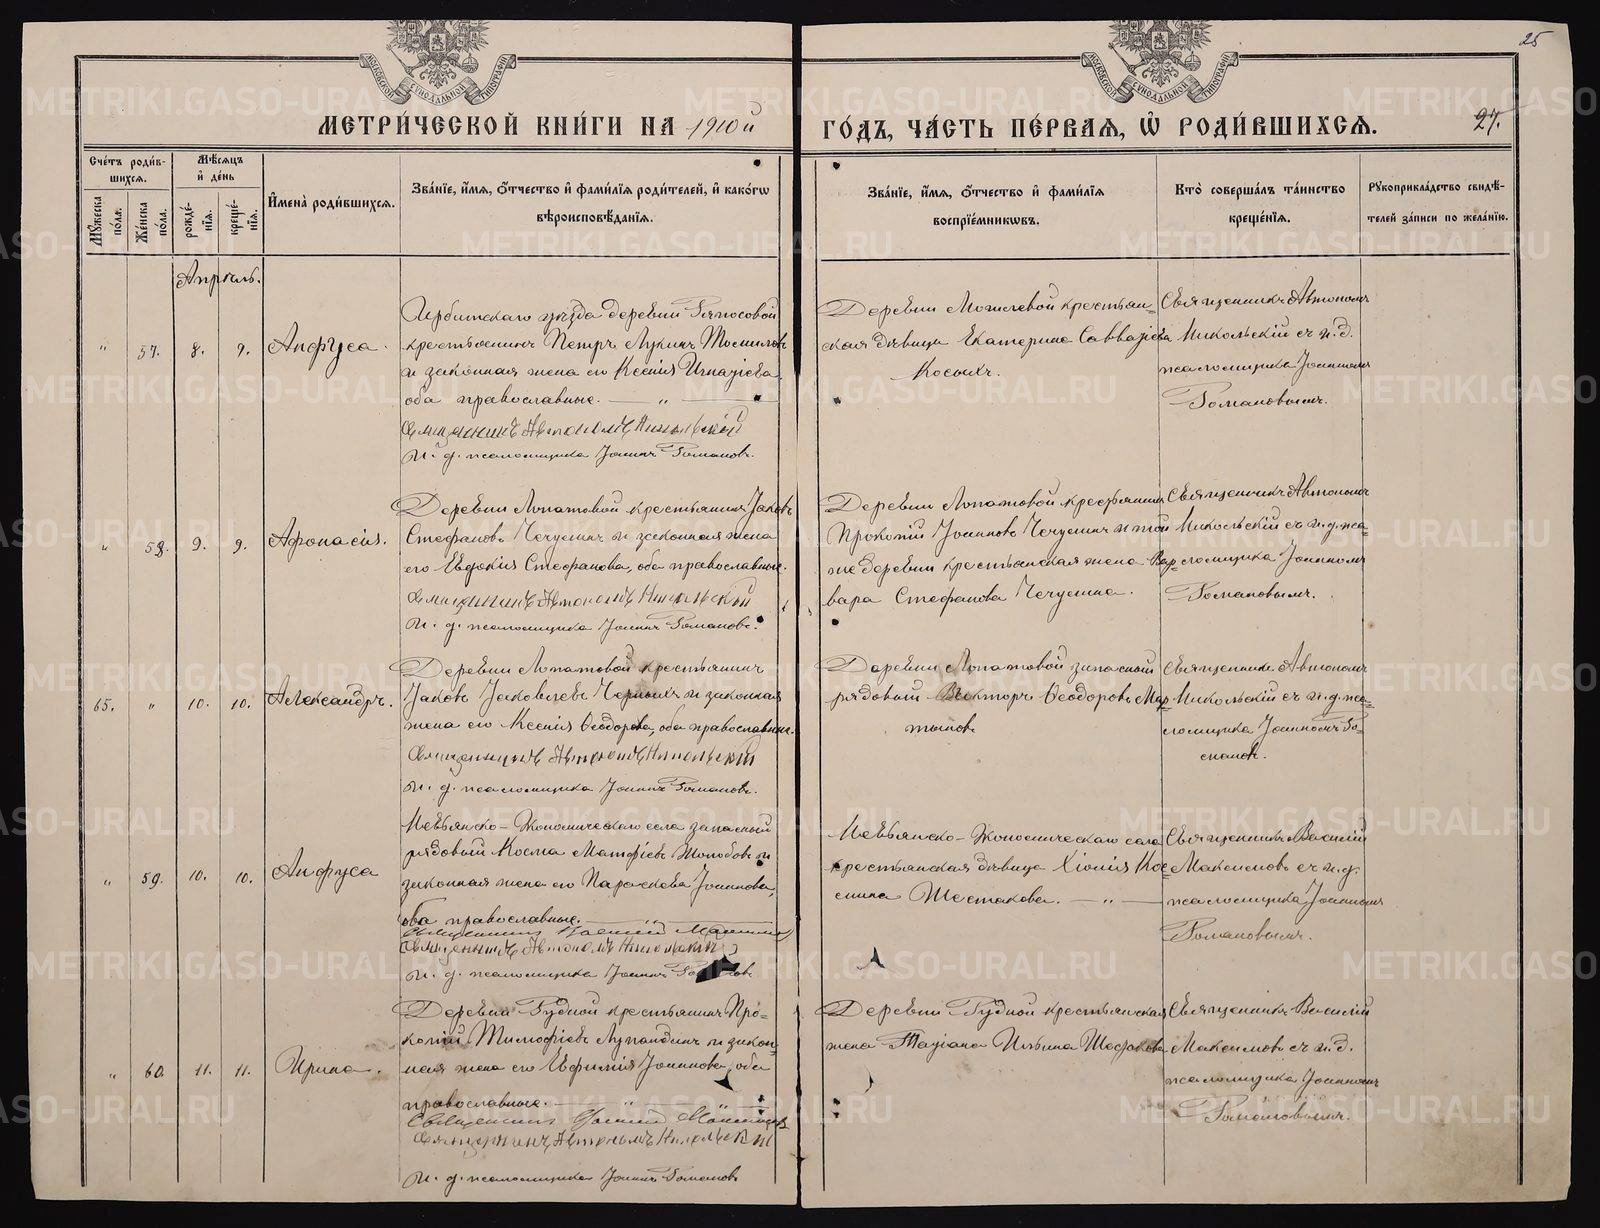 25
МОСКОВСКОЙ СѴНОДАЛЬНОЙ ТИПОГРАФІИ
МОСКОВСКОЙ СѴНОДАЛЬНОЙ ТИПОГРАФІИ
МЕТРИ́ЧЕСКОЙ КНИ́ГИ НА 1910й
ГО́ДЪ, ЧА́СТЬ ПЕ́РВАЯ, Ѡ҆ РОДИ́ВШИХСЯ.
27.
Сче́тъ роди́в-
шихся.
Мѣ́сяцъ
и҆ де́нь
Мꙋ́жеска
по́ла.
Же́нска
по́ла.
рожде́-
нїя.
креще́-
нїя.
И҆мена̀ роди́вшихся.
Зва́нїе, и҆́мя, ѻ҆́тчество и҆ фами́лїя роди́телей, и҆ како́гѡ
вѣроисповѣ́данїя.
Зва́нїе, и҆́мя, ѻ҆́тчество и҆ фами́лїя
воспрїе́мникѡвъ.
Кто̀ соверша́лъ та́инство
креще́нїя.
Рꙋкоприкла́дство свидѣ́-
телей за́писи по жела́нїю.
Апрѣль.
„ 57. 8. 9. Анфуса.
Ирбитскаго уѣзда деревни
крестьянинъ Петръ Лукинъ Томиловъ
и законная жена его Ксенія Игнатіева,
оба православные. — „ —
Священникъ Автономъ Никольскій
И. д. псаломщика Іоаннъ Романовъ.
Деревни Могилевой крестьян-
ская дѣвица Екатерина Савватіева
Косыхъ.
Священникъ Автономъ
Никольскій съ и. д.
псаломщика Іоанномъ
Романовымъ.
„ 58. 9. 9. Афонасія.
Деревни Лопатовой крестьянинъ Іаковъ
Стефановъ Чечулинъ и законная жена
его Евдокія Стефанова, оба православные.
Священникъ Автономъ Никольскій
И. д. псаломщика Іоаннъ Романовъ.
Деревни Лопатовой крестьянинъ
Прокопій Іоанновъ Чечулинъ и той
же деревни крестьянская жена Вар-
вара Стефанова Чечулина.
Священникъ Автономъ
Никольскій съ и. д. пса-
ломщика Іоанномъ
Романовымъ.
65. „ 10. 10. Александръ.
Деревни Лопатовой крестьянинъ
Іаковъ Іаковлевъ Черныхъ и законная
жена его Ксенія Ѳеодорова, оба православные.
Священникъ Автономъ Никольскій
И. д. псаломщика Іоаннъ Романовъ.
Деревни Лопатовой запасный
рядовый Викторъ Ѳеодоровъ Мар-
тыновъ
Священникъ Автономъ
Никольскій съ и. д. пса-
ломщика Іоанномъ Ро-
мановъ.
„ 59. 10. 10. Анфуса
Невьянско-Экономическаго села запасный
рядовый Косма Матфіевъ Жолобовъ и
законная жена его Параскева Іоаннова,
оба православные. — „ —
Священникъ Василій Максимовъ
Священникъ Автономъ Никольскій
И. д. псаломщика Іоаннъ Романовъ
Невьянско-Экономическаго села
крестьянская дѣвица Хіонія Кос-
мина Шестакова. — „ —
Священникъ Василій
Максимовъ съ и. д.
псаломщика Іоанномъ
Романовымъ.
„ 60. 11. 11. Ирина.
Деревни Рудной крестьянинъ Про-
копій Тимофіевъ Лупандинъ и закон-
ная жена его Евфимія Іоаннова, оба
православные. — „ —
Священникъ Василій Максимовъ
Священникъ Автономъ Никольскій
И. д. псаломщика Іоаннъ Романовъ
Деревни Рудной крестьянская
жена Татіана Ильина
Священникъ Василій
Максимовъ съ и. д.
псаломщика Іоанномъ
Романовымъ.
METRIKI.GASO-URAL.RU